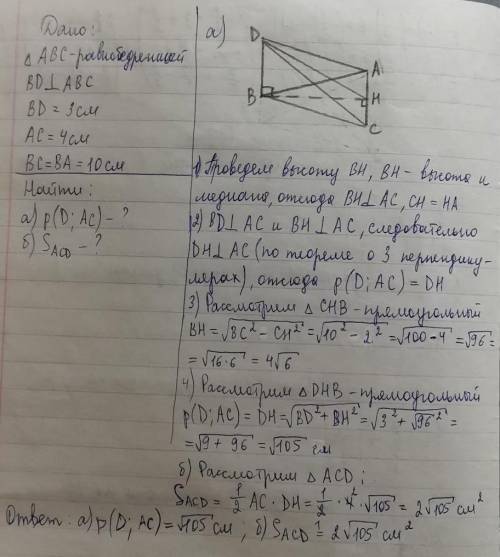 Дано:
△ ABC - равнобедренный
BD⊥ABC
BD = 3 см
AC = 4 см
BC = BA = 10 см
Найти:
а) p(D; AC) - ?
б) S_ACD - ?
а)
D
A
B
H
C
1) Проведем высоту BH, BH - высота и
медиана, отсюда BH⊥AC, CH = HA
2) BD⊥AC и BH⊥AC, следовательно
DH⊥AC (по теореме о 3 перпендику-
лярах), отсюда p(D; AC) = DH
3) Рассмотрим △ CHB - прямоугольный
BH = √BC² - CH² = √10² - 2² = √100 - 4 = √96 =
= √16·6 = 4√6
4) Рассмотрим △ DHB - прямоугольный
p(D; AC) = DH = √BD² + BH² = √3² + √96² =
= √9 + 96 = √105 см
б) Рассмотрим △ ACD;
S_ACD = 1/2 AC · DH = 1/2 · 4² · √105 = 2√105 см²
Ответ: а) p(D; AC) = √105 см; б) S_ACD = 2√105 см²